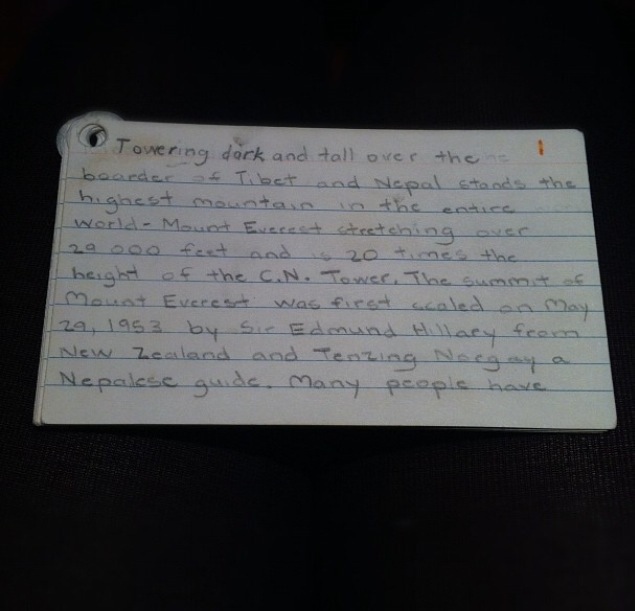 1
Towering dark and tall over the
boarder of Tibet and Nepal stands the
highest mountain in the entire
world - Mount Everest stretching over
29 000 feet and is 20 times the
height of the C.N. Tower. The summit of
Mount Everest was first scaled on May
29, 1953 by Sir Edmund Hillary from
New Zealand and Tenzing Norgay a
Nepalese guide. Many people have